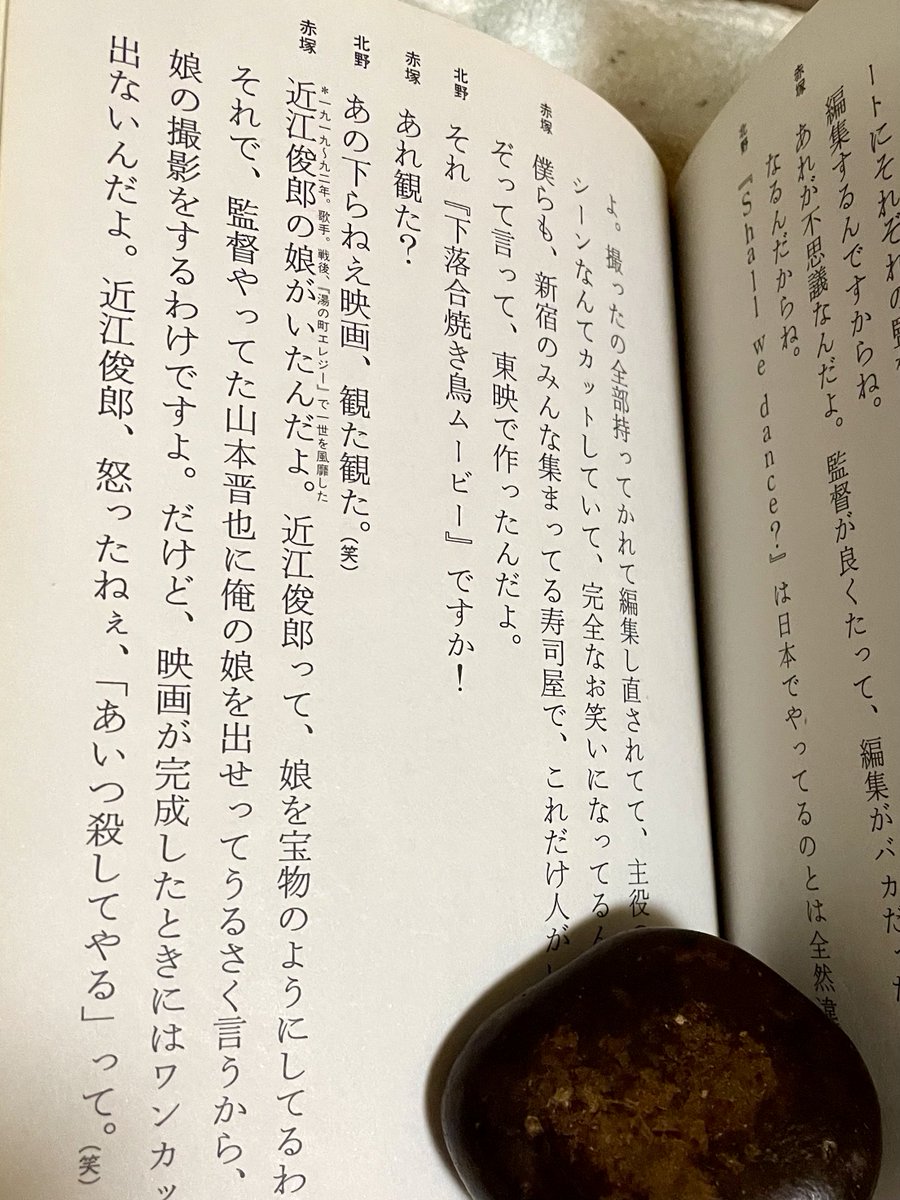 ートにそれぞれの監
編集するんですからね。
赤塚 あれが不思議なんだよ。監督が良くたって、編集がバカだった
なるんだからね。
北野 『Shall we dance?』は日本でやってるのとは全然違
よ。撮ったの全部持ってかれて編集し直されてて、主役の
シーンなんてカットしていて、完全なお笑いになってるん
赤塚 僕らも、新宿のみんな集まってる寿司屋で、これだけ人が
ぞって言って、東映で作ったんだよ。
北野 それ『下落合焼き鳥ムービー』ですか！
赤塚 あれ観た？
北野 あの下らねえ映画、観た観た。（笑）
赤塚 近江俊郎の娘がいたんだよ。近江俊郎って、娘を宝物のようにしてるわ
＊一九一九〜九二年。歌手。戦後、「湯の町エレジー」で一世を風靡した
それで、監督やってた山本晋也に俺の娘を出せってうるさく言うから、
娘の撮影をするわけですよ。だけど、映画が完成したときにはワンカッ
出ないんだよ。近江俊郎、怒ったねぇ、「あいつ殺してやる」って。（笑）